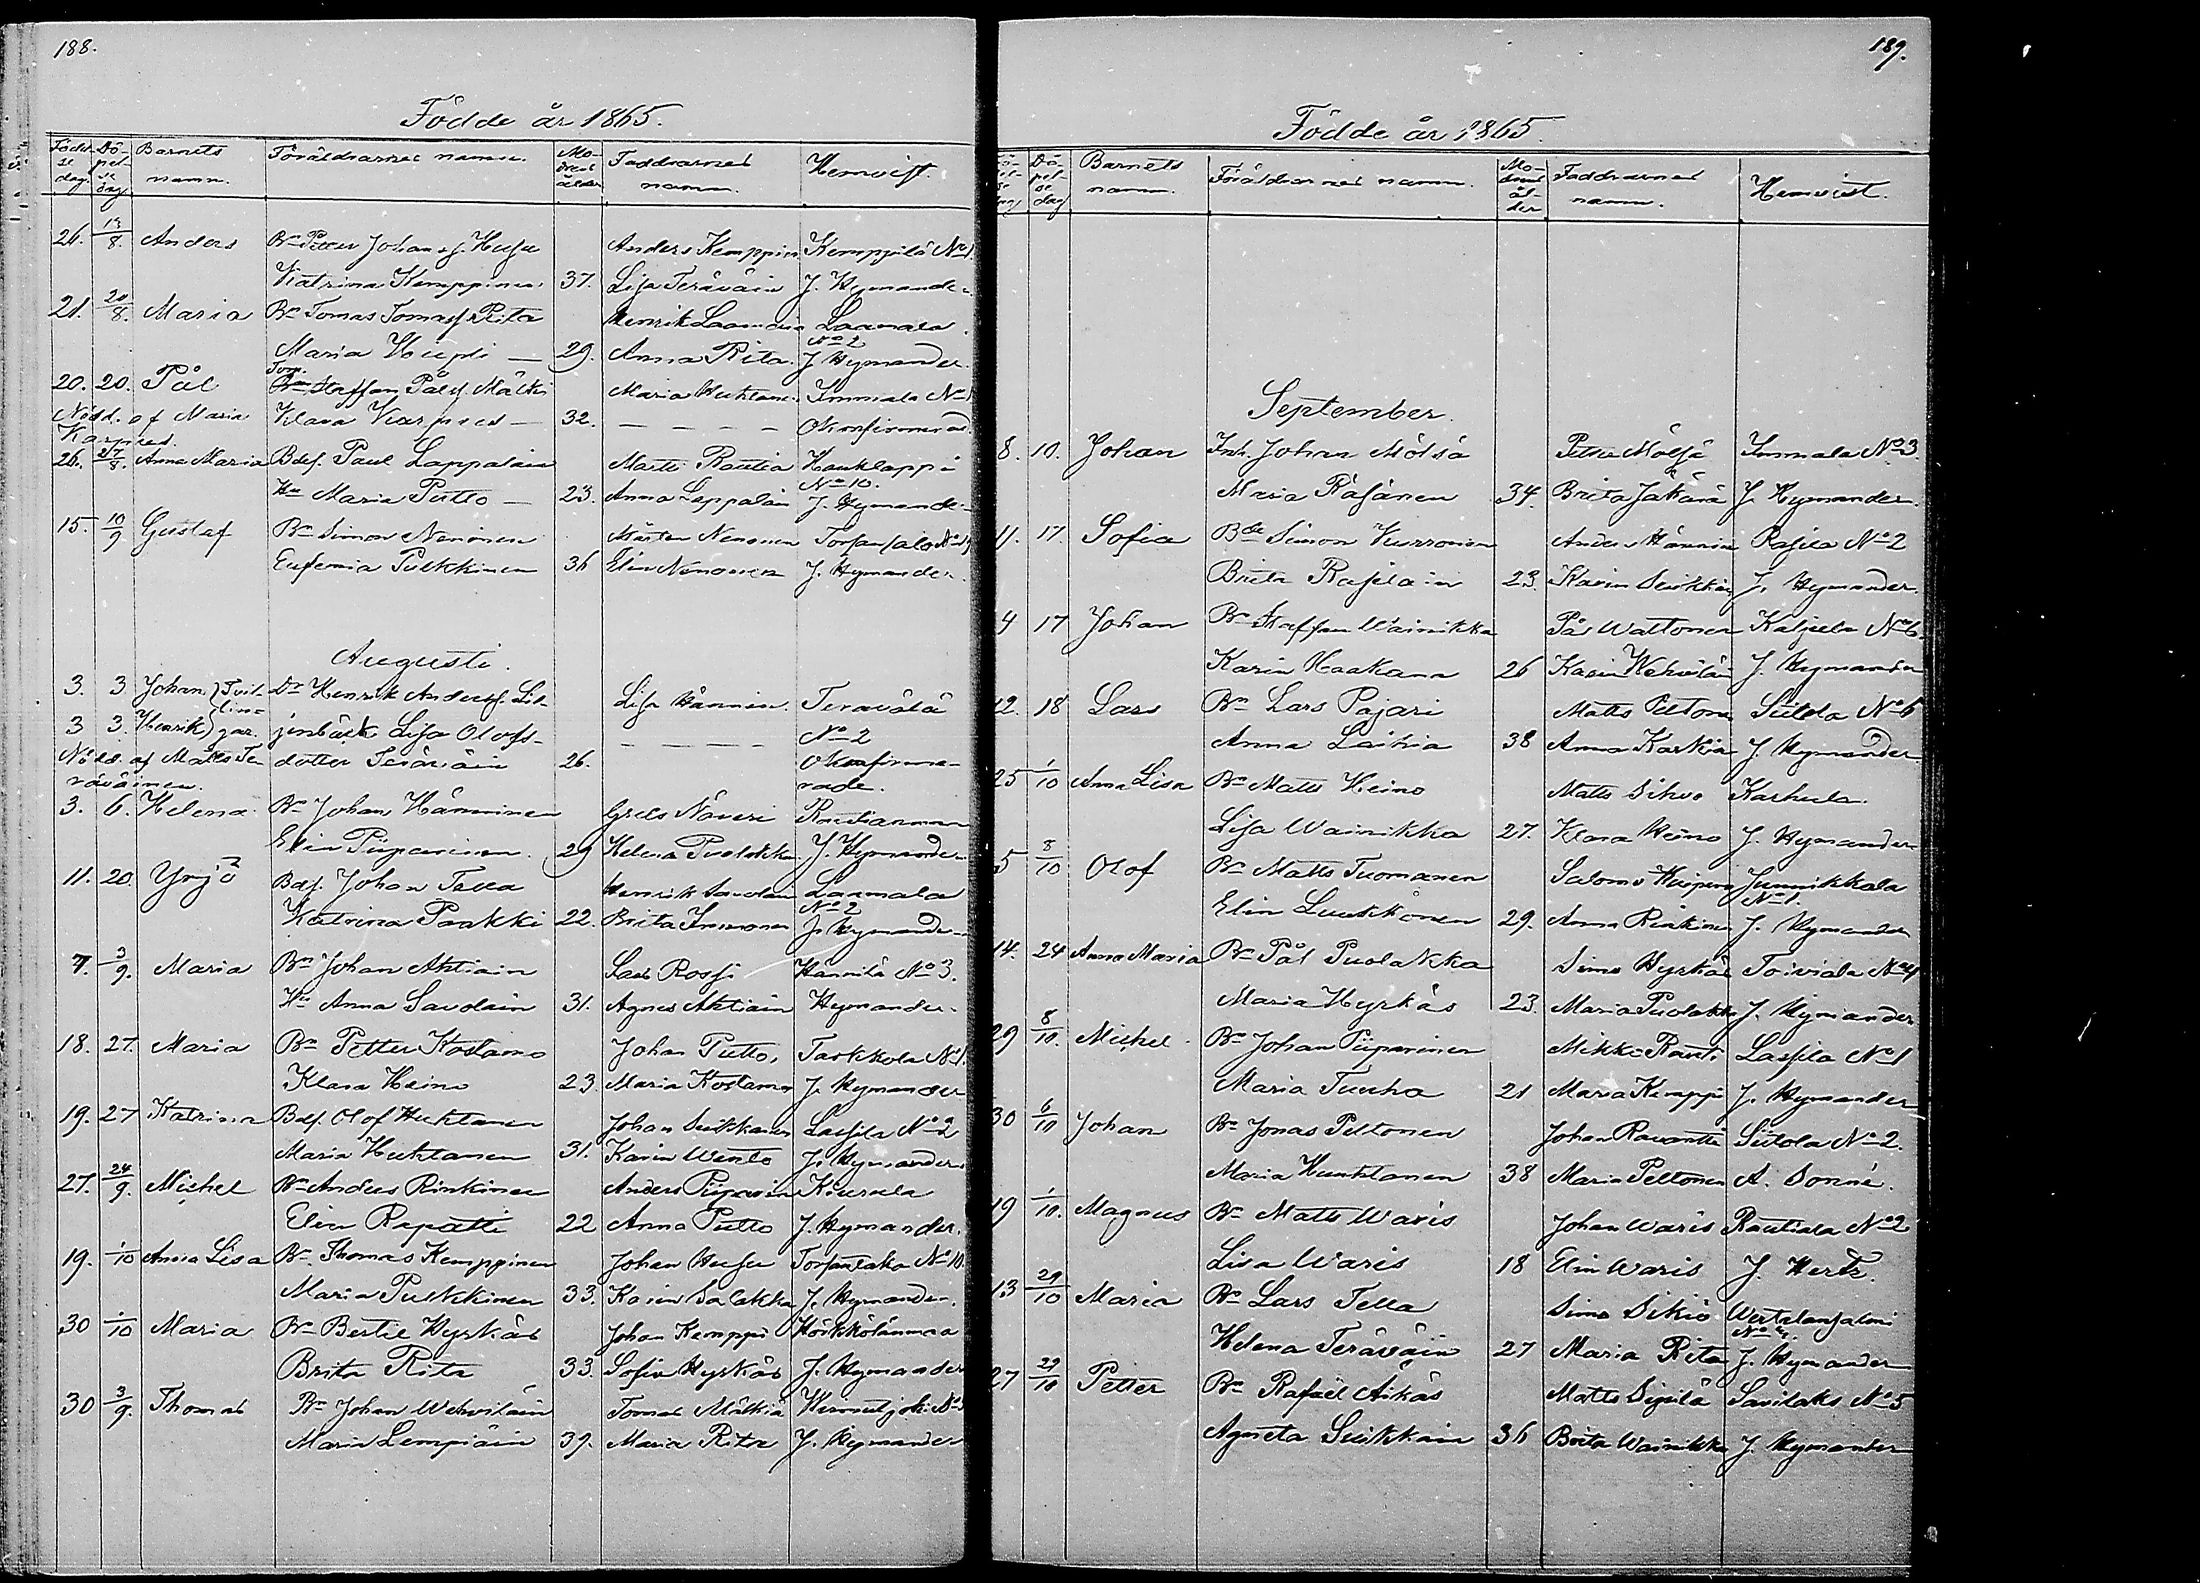 188.
Födde år 1865.
Barnets namn. Föräldrarnes namn. Faddrarnes namn. Hemvist.
26. 13/8. Anders Bn Petter Johans. Husu Anders Kemppin Kemppilä No 1
Katrina Kemppinen 37. Lisa Teräväin J. Hymander
21. 20/8. Maria Bn Tomas Tomass. Rita Henrik Laamala
Maria Hiepli — 29. Anna Rita No 2 J Hymander
20. 20. Pål Torp. Staffan Pålss. Mälki Maria Huhtane Immala No
Nödd. af Maria Klara Karpies — 32. — — — — Okonfirmerad
Karpies.
26. 27/8. Anna Maria Bdss. Paul Lappalain Matts Rautia Hauklappi
Hu Maria Putto — 23. Anna Lappalain No 10. J. Hymander
15. 10/9 Gustaf Bn Simon Nenonen Mårten Nenonen Torsansalo No
Eufemia Pulkkinen 36 Elin Nenonen J. Hymander.
Augusti.
3. 3 Johan } Tvil- Dr Henrik Anderss. Lil- Lisa Hännin Teravälä
3 3. Henrik } lingar. jenbäck Lisa Olofs- — — — — No 2
Nödd. af Matts Te- dotter Teräväin 26. Okonfirme-
räväinen. rade.
3. 6. Helena Bn Johan Hänninen Grels Näveri Rautianmaa
Elin Piiparinen. 29 Helena Puolakka J. Hymander
11. 20. Yrjö Bdss. Johan Tella Henrik Savolain Laamala
Katrina Paakki 22. Brita Immonen No 2 J. Hymander
7. 3/9. Maria Bn Johan Ahtiain Lars Rossi Hännilä No 3.
Hu Anna Savolain 31. Agnes Ahtiain Hymander.
18. 27. Maria Bn Petter Kostamo Johan Putto, Tarkkola No 1.
Klara Heino 23. Maria Kostamo J. Hymander
19. 27 Katrina Bdss. Olof Huhtanen Johan Suikkanen Lassila No 2
Maria Huhtanen 31. Karin Wento J. Hymander.
27. 24/9. Michel Bn Anders Rinkinen Anders Piiparin Kiurula
Elin Repatti 22 Anna Putto J. Hymander.
19. 1/10 Anna Lisa Bn Thomas Kemppinen Johan Husu Torsansalo No 10.
Maria Pulkkinen 33. Karin Solakka J. Hymander.
30 1/10 Maria Bn Bertil Hyrkäs Johan Kemppi Hörkkölänmaa
Brita Rita 33. Sofia Hyrkäs J. Hymander
30 3/9. Thomas Bn Johan Wehviläin Tomas Mälkiä
Maria Lempiäin 39. Maria Rita J. Hymander
189.
Födde år 1865.
Barnets namn. Föräldrarnes namn. Faddrarnes namn. Hemvist.
September.
8. 10. Johan Inh. Johan Mölsä Petter Mölsä Immala No 3.
Maria Räsänen 34. Brita Jäkärä J. Hymander.
11. 17. Sofia Bde Simon Kurronen Anders Hännin Rasila No 2
Brita Rasilain 23. Karin Suikkan J. Hymander.
4 17 Johan Bn Staffan Wainikka Pål Wattonen Kaljula No 6.
Karin Haakana 26 Karin Wehviläin J. Hymander
12. 18 Lars Bn Lars Pajari Matts Peltone Siitola No 6
Anna Laitia 38 Anna Karkia J. Hymander
25 1/10 Anna Lisa Bn Matts Heino Matts Sihvo Karhula.
Lisa Wainikka 27. Klara Heino J. Hymander
5 8/10 Olof Bn Matts Tuomanen Salomo Junnikkala
Elin Luukkonen 29. Anna Rinkinen No 1. J. Hymander
14. 24 Anna Maria Bn Pål Puolakka Simo Hyrkäs Toiviala No 4
Maria Hyrkäs 23. Maria Puolakk J. Hymander
29 8/10. Michel Bn Johan Piiparinen Mikko Rauti Lassila No 1
Maria Tuuha 21 Maria Kemppi J. Hymander
30 6/10 Johan Bn Jonas Peltonen Johan Ravantti Siitola No 2.
Maria Huuhtanen 38 Maria Peltonen A. Sonné.
19 1/10. Magnus Bn Matts Waris Johan Waris Rautiala No 2
Lisa Waris 18 Elin Waris J. Hertz.
13 29/10 Maria Bn Lars Tella Simo Sikiö
Helena Teräväin 27 Maria Rita J. Hymander
27 29/10 Petter Bn Rafael Äikäs Matts Sipilä Savilaks No 5
Agneta Suikkain 36 Brita Wainikka J. Hymander